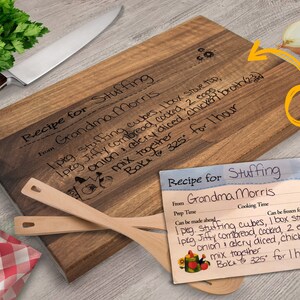 Recipe for Stuffing
From GrandmaMorris
1 pkg stuffing cubes, 1 box stuffing
1 pkg Jiffy cornbread, cooked, 2 eggs
onion & celery diced, chicken broth
mix together
Bake to 325° for 1 hour
Recipe for Stuffing
From GrandmaMorris
Prep Time Cooking Time
Can be made ahead Can be frozen
1 pkg stuffing cubes, 1 box
1 pkg Jiffy cornbread, cooked, 2
onion & celery diced, chic
mix together
Bake to 325° for 1 h